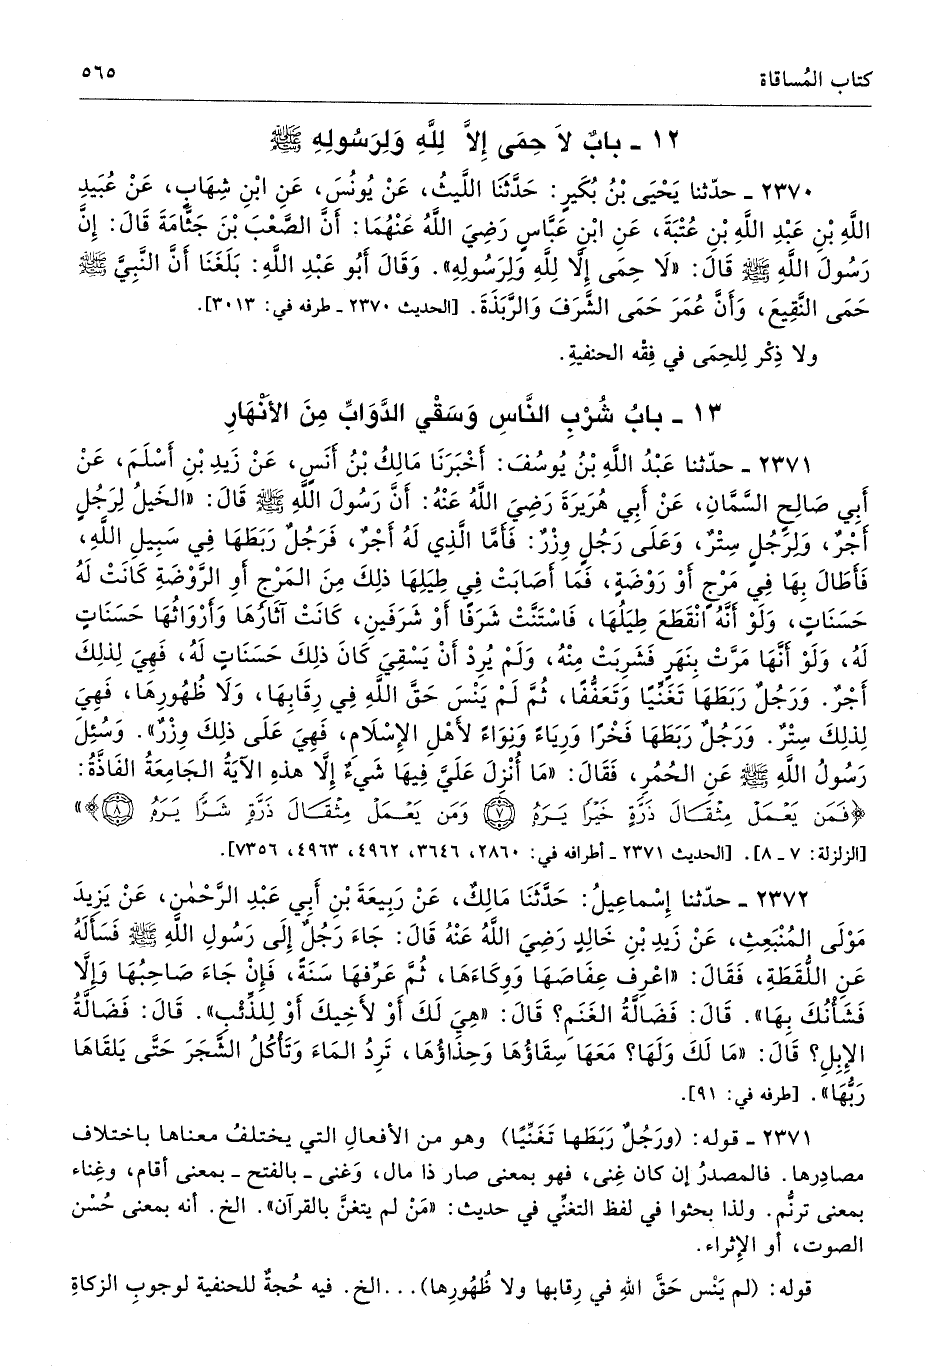 كتاب المُساقاة
٥٦٥
١٢ ـ بابٌ لاَ حِمَى إِلاَّ لِلَّهِ وَلِرَسُولِهِ ﷺ
٢٣٧٠ ـ حدّثنا يَحْيَى بْنُ بُكَيرٍ: حَدَّثَنَا اللَّيثُ، عَنْ يُونُسَ، عَنِ ابْنِ شِهَابٍ، عَنْ عُبَيدِ
اللَّهِ بْنِ عَبْدِ اللَّهِ بْنِ عُتْبَةَ، عَنِ ابْنِ عَبَّاسٍ رَضِيَ اللَّهُ عَنْهُمَا: أَنَّ الصَّعْبَ بْنَ جَثَّامَةَ قَالَ: إِنَّ
رَسُولَ اللَّهِ ﷺ قَالَ: «لَا حِمَى إِلَّا لِلَّهِ وَلِرَسُولِهِ». وَقَالَ أَبُو عَبْدِ اللَّهِ: بَلَغَنَا أَنَّ النَّبِيَّ ﷺ
حَمَى النَّقِيعَ، وَأَنَّ عُمَرَ حَمَى الشَّرَفَ وَالرَّبَذَةَ. [الحديث ٢٣٧٠ ـ طرفه في: ٣٠١٣].
ولا ذِكْر لِلحِمَى في فِقْه الحنفيةِ.
١٣ ـ بابُ شُرْبِ النَّاسِ وَسَقْيِ الدَّوَابِّ مِنَ الأَنْهَارِ
٢٣٧١ ـ حدّثنا عَبْدُ اللَّهِ بْنُ يُوسُفَ: أَخْبَرَنَا مَالِكُ بْنُ أَنَسٍ، عَنْ زَيدِ بْنِ أَسْلَمَ، عَنْ
أَبِي صَالِحٍ السَّمَّانِ، عَنْ أَبِي هُرَيرَةَ رَضِيَ اللَّهُ عَنْهُ: أَنَّ رَسُولَ اللَّهِ ﷺ قَالَ: «الخَيلُ لِرَجُلٍ
أَجْرٌ، وَلِرَجُلٍ سِتْرٌ، وَعَلَى رَجُلٍ وِزْرٌ: فَأَمَّا الَّذِي لَهُ أَجْرٌ، فَرَجُلٌ رَبَطَهَا فِي سَبِيلِ اللَّهِ،
فَأَطَالَ بِهَا فِي مَرْجٍ أَوْ رَوْضَةٍ، فَمَا أَصَابَتْ فِي طِيَلِهَا ذلِكَ مِنَ المَرْجِ أَوِ الرَّوْضَةِ كَانَتْ لَهُ
حَسَنَاتٍ، وَلَوْ أَنَّهُ انْقَطَعَ طِيَلُهَا، فَاسْتَنَّتْ شَرَفًا أَوْ شَرَفَينِ، كَانَتْ آثَارُهَا وَأَرْوَاثُهَا حَسَنَاتٍ
لَهُ، وَلَوْ أَنَّهَا مَرَّتْ بِنَهَرٍ فَشَرِبَتْ مِنْهُ، وَلَمْ يُرِدْ أَنْ يَسْقِيَ كَانَ ذلِكَ حَسَنَاتٍ لَهُ، فَهِيَ لِذلِكَ
أَجْرٌ. وَرَجُلٌ رَبَطَهَا تَغَنِّيًا وَتَعَفُّفًا، ثُمَّ لَمْ يَنْسَ حَقَّ اللَّهِ فِي رِقَابِهَا، وَلَا ظُهُورِهَا، فَهِيَ
لِذلِكَ سِتْرٌ. وَرَجُلٌ رَبَطَهَا فَخْرًا وَرِيَاءً وَنِوَاءً لأَهْلِ الإِسْلَامِ، فَهِيَ عَلَى ذلِكَ وِزْرٌ». وَسُئِلَ
رَسُولُ اللَّهِ ﷺ عَنِ الحُمُرِ، فَقَالَ: «مَا أُنْزِلَ عَلَيَّ فِيهَا شَيءٌ إِلَّا هذهِ الآيَةُ الجَامِعَةُ الفَاذَّةُ:
﴿فَمَن يَعْمَلْ مِثْقَالَ ذَرَّةٍ خَيْرًا يَرَهُ ٧ وَمَن يَعْمَلْ مِثْقَالَ ذَرَّةٍ شَرًّا يَرَهُ ٨﴾»
[الزلزلة: ٧ ـ ٨]. [الحديث ٢٣٧١ ـ أطرافه في: ٢٨٦٠، ٣٦٤٦، ٤٩٦٢، ٤٩٦٣، ٧٣٥٦].
٢٣٧٢ ـ حدّثنا إِسْماعِيلُ: حَدَّثَنَا مَالِكٌ، عَنْ رَبِيعَةَ بْنِ أَبِي عَبْدِ الرَّحْمٰنِ، عَنْ يَزِيدَ
مَوْلَى المُنْبَعِثِ، عَنْ زَيدِ بْنِ خَالِدٍ رَضِيَ اللَّهُ عَنْهُ قَالَ: جَاءَ رَجُلٌ إِلَى رَسُولِ اللَّهِ ﷺ فَسَأَلَهُ
عَنِ اللُّقَطَةِ، فَقَالَ: «اعْرِف عِفَاصَهَا وَوِكَاءَهَا، ثُمَّ عَرِّفهَا سَنَةً، فَإِنْ جَاءَ صَاحِبُهَا وَإِلَّا
فَشَأْنُكَ بِهَا». قَالَ: فَضَالَّةُ الغَنَمِ؟ قَالَ: «هِيَ لَكَ أَوْ لأَخِيكَ أَوْ لِلذِّئْبِ». قَالَ: فَضَالَّةُ
الإِبِلِ؟ قَالَ: «مَا لَكَ وَلَهَا؟ مَعَهَا سِقَاؤُهَا وَحِذَاؤُهَا، تَرِدُ المَاءَ وَتَأْكُلُ الشَّجَرَ حَتَّى يَلقَاهَا
رَبُّهَا». [طرفه في: ٩١].
٢٣٧١ ـ قوله: (ورَجُلٌ رَبَطَها تَغَنِّيًا) وهو من الأفعالِ التي يختلفُ معناها باختلاف
مصادِرها. فالمصدرُ إن كان غِنى، فهو بمعنى صار ذا مال، وَغنى ـ بالفتح ـ بمعنى أقام، وغِناء
بمعنى ترنُّم. ولذا بحثوا في لفظ التغنِّي في حديث: «مَنْ لم يتغنَّ بالقرآن». الخ. أنه بمعنى حُسْن
الصوت، أو الإِثراء.
قوله: (لم يَنْس حَقَّ اللهِ في رِقابها ولا ظُهُورِها)...الخ. فيه حُجةٌ للحنفية لوجوبِ الزكاةِ